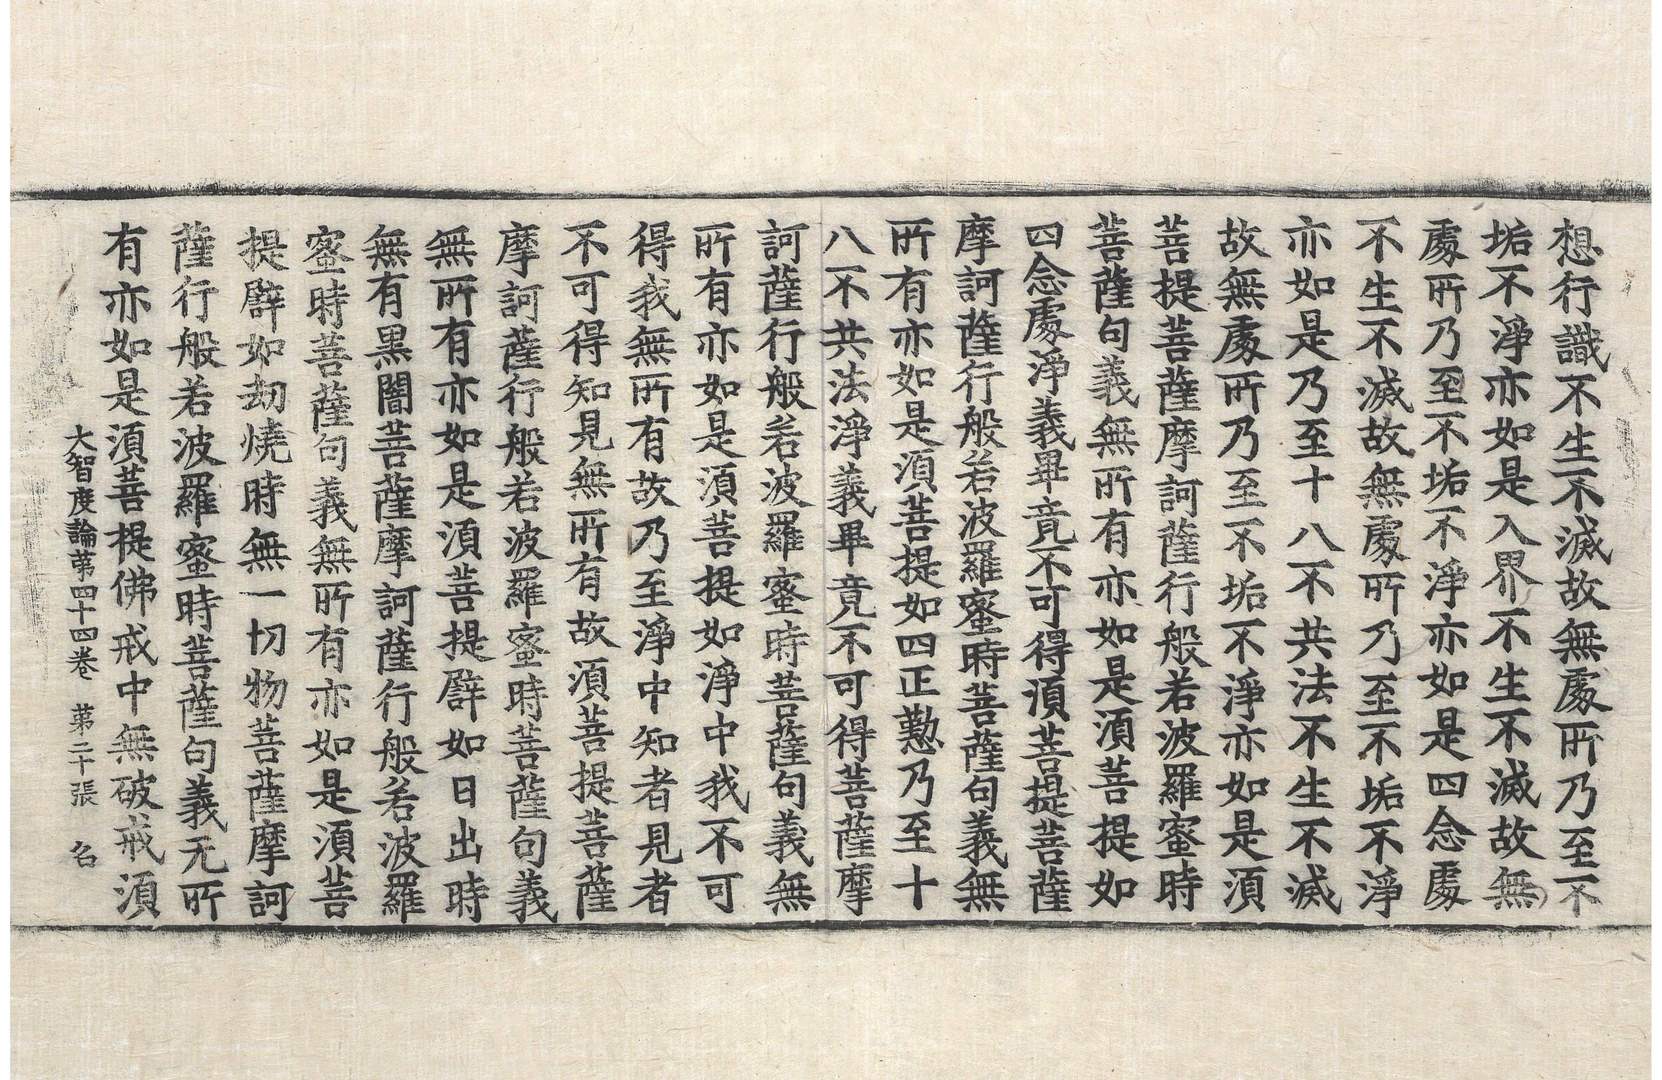 想行識不生不滅故無處所乃至不
垢不淨亦如是入界不生不滅故無
處所乃至不垢不淨亦如是四念處
不生不滅故無處所乃至不垢不淨
亦如是乃至十八不共法不生不滅
故無處所乃至不垢不淨亦如是須
菩提菩薩摩訶薩行般若波羅蜜時
菩薩句義無所有亦如是須菩提如
四念處淨義畢竟不可得須菩提菩薩
摩訶薩行般若波羅蜜時菩薩句義無
所有亦如是須菩提如四正懃乃至十
八不共法淨義畢竟不可得菩薩摩
訶薩行般若波羅蜜時菩薩句義無
所有亦如是須菩提如淨中我不可
得我無所有故乃至淨中知者見者
不可得知見無所有故須菩提菩薩
摩訶薩行般若波羅蜜時菩薩句義
無所有亦如是須菩提譬如日出時
無有黑闇菩薩摩訶薩行般若波羅
蜜時菩薩句義無所有亦如是須菩
提譬如劫燒時無一切物菩薩摩訶
薩行般若波羅蜜時菩薩句義无所
有亦如是須菩提佛戒中無破戒須
大智度論第四十四卷 第二十張 名